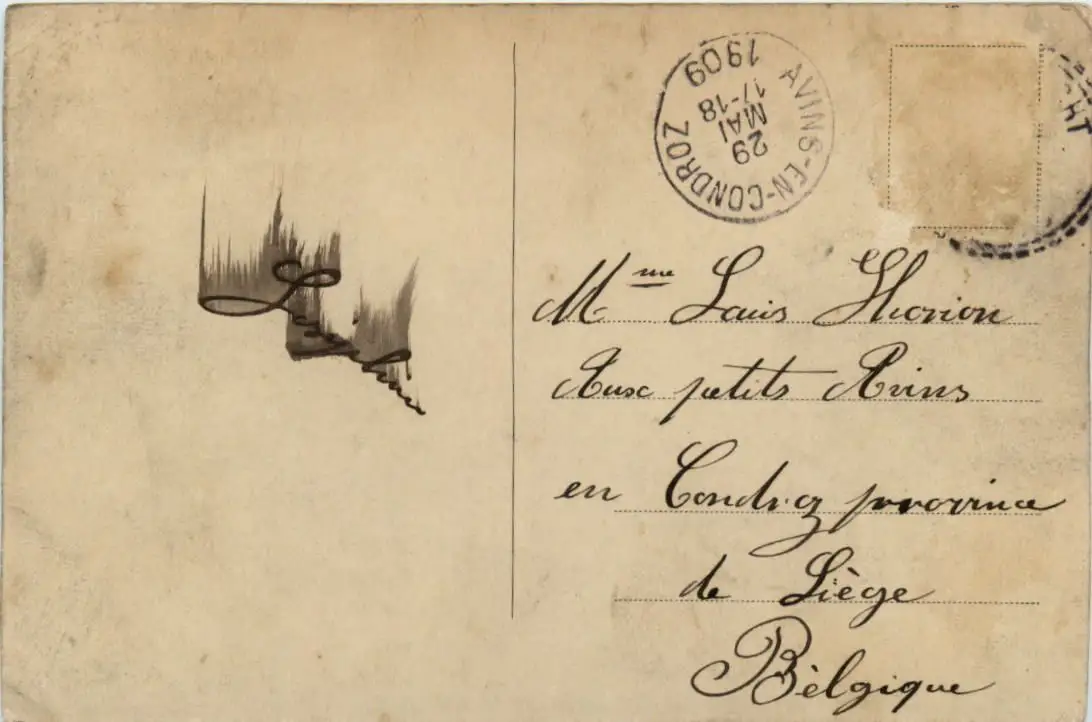 AVINS-EN-CONDROZ
29
MAI
17-18
1909
HT
Mme Louis Horion
Aux petits Avins
en Condroz province
de Liège
Bèlgique